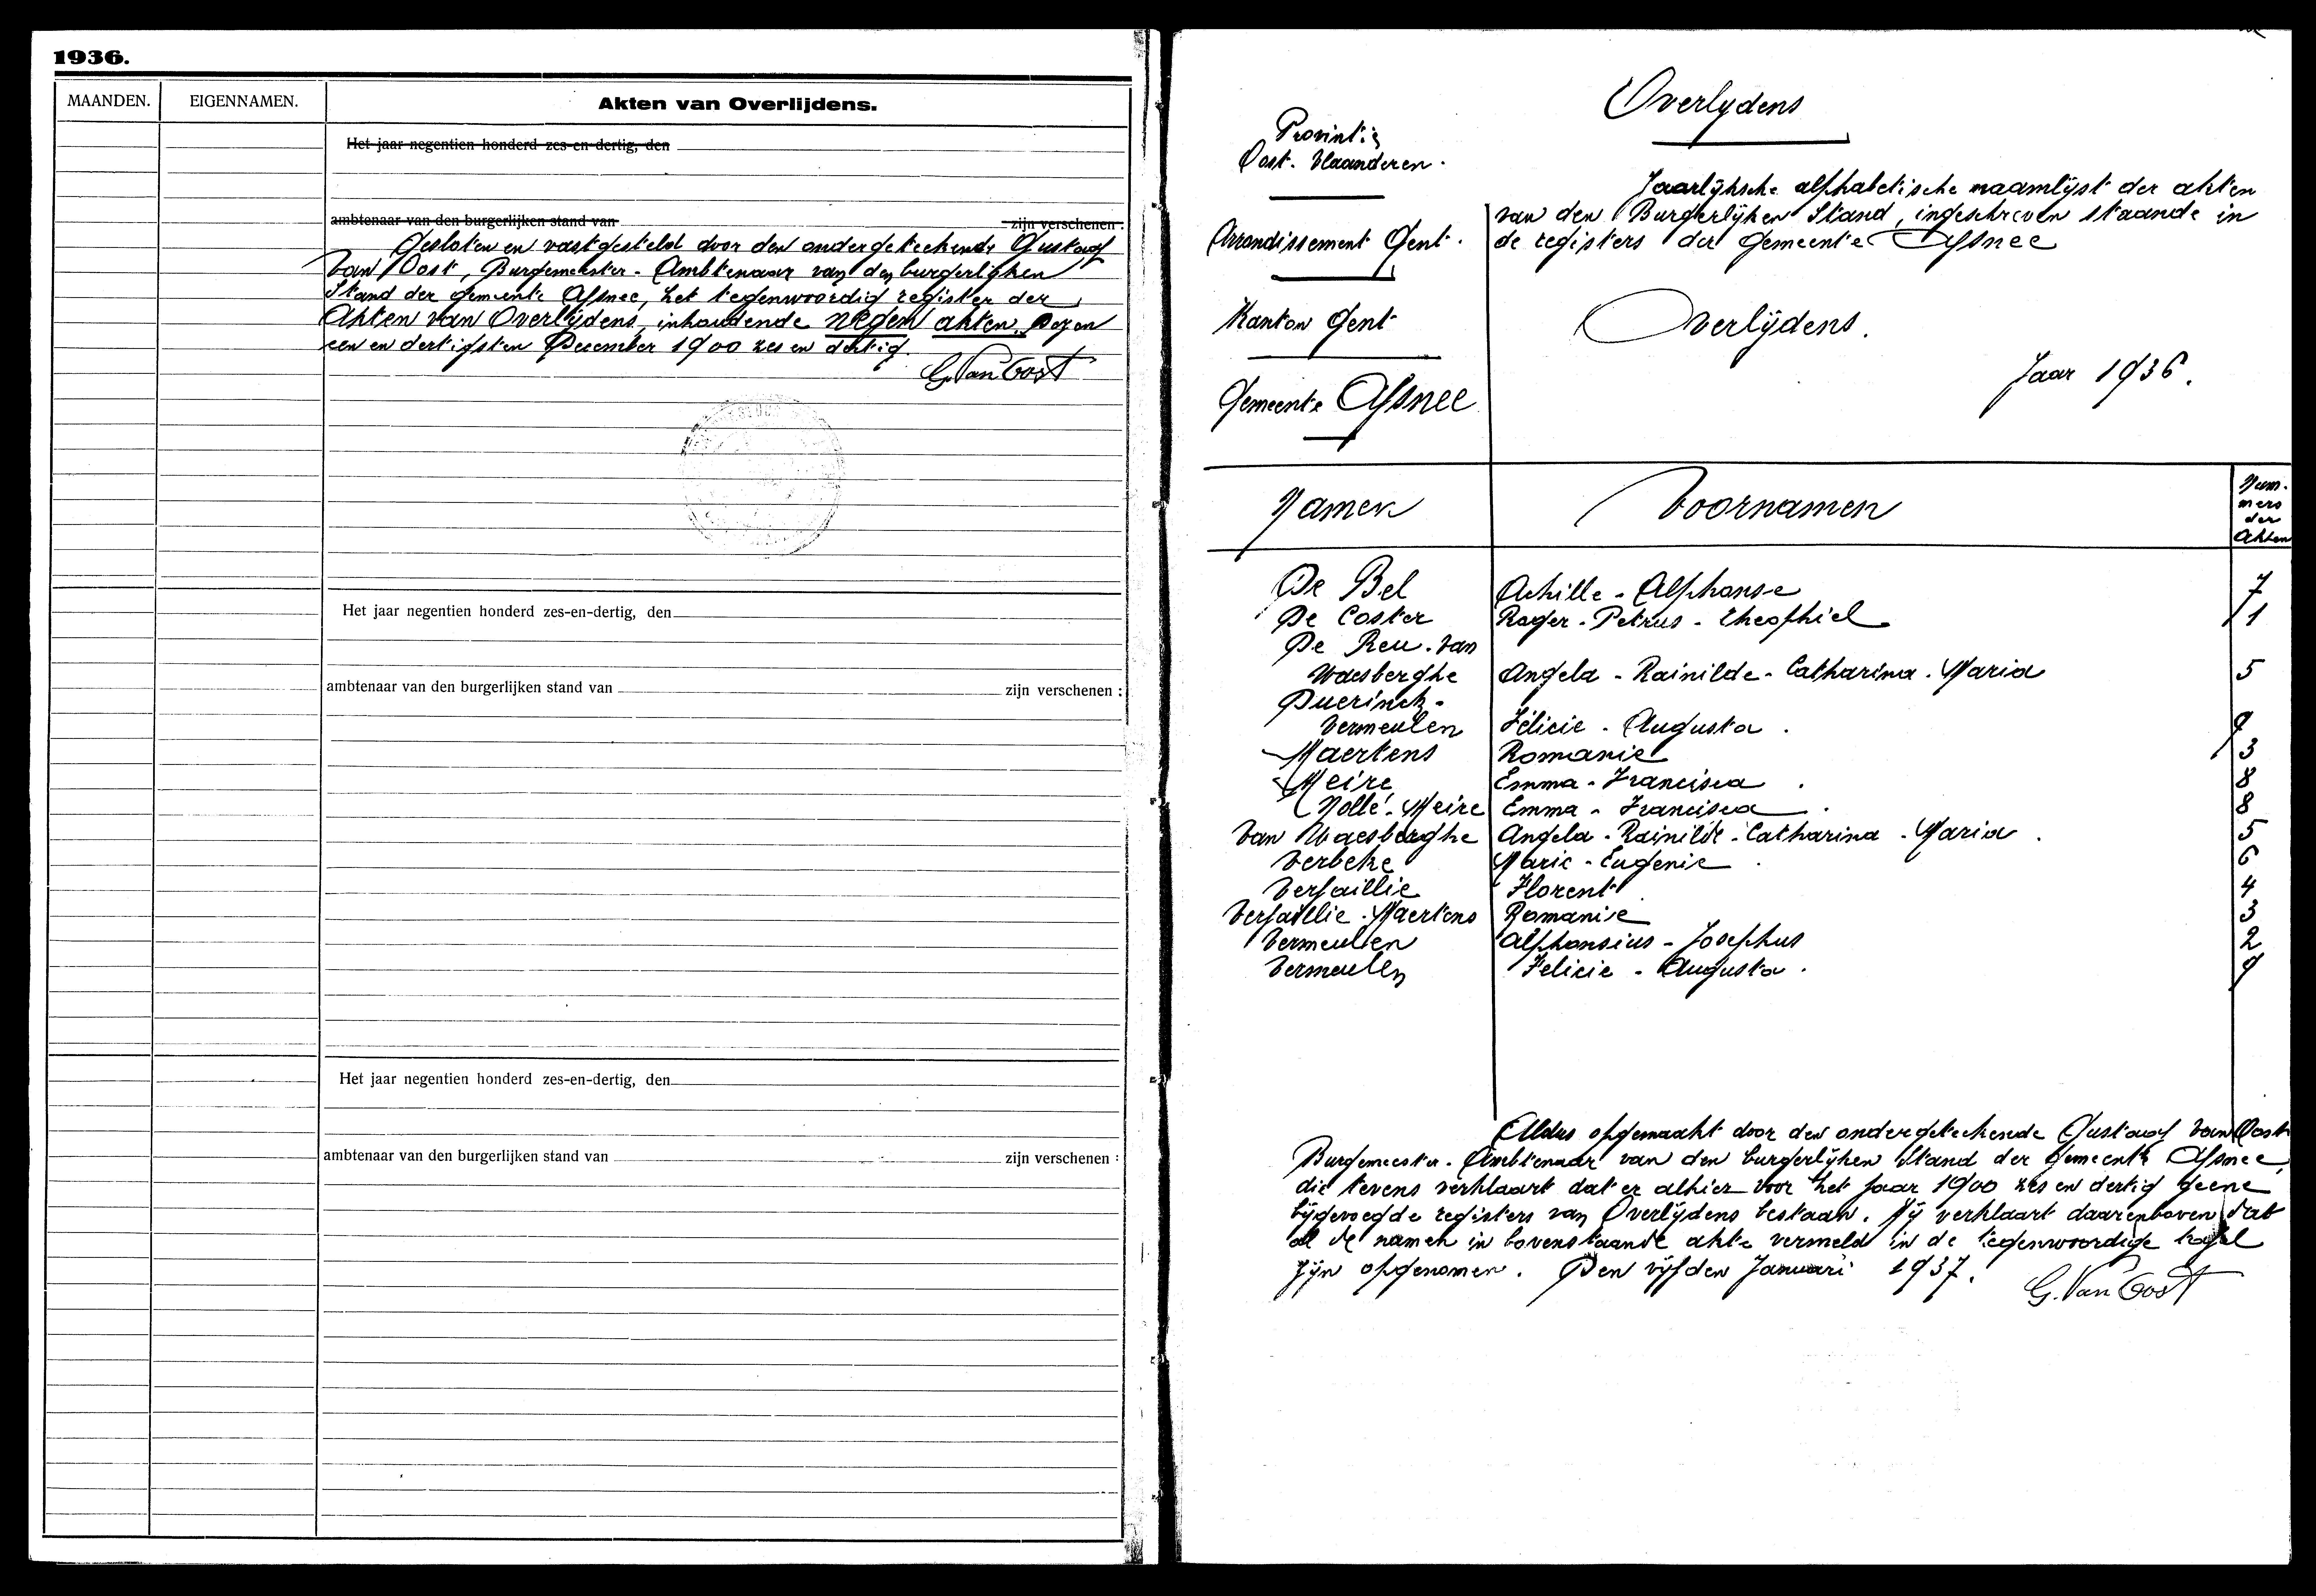 1936.
MAANDEN. EIGENNAMEN. Akten van Overlijdens.
Het jaar negentien honderd zes-en-dertig, den
ambtenaar van den burgerlijken stand van zijn verschenen :
Gesloten en vastgesteld door den ondergeteekende Gustaaf
Van Oost, Burgemeester - Ambtenaar van den burgerlijken
Stand der gemeente Afsnee, het tegenwoordig register der
Akten van Overlijdens, inhoudende negen akten. Dezen
een en dertigsten December 1900 zes en dertig.
G. Van Oost
Het jaar negentien honderd zes-en-dertig, den
ambtenaar van den burgerlijken stand van zijn verschenen :
Het jaar negentien honderd zes-en-dertig, den
ambtenaar van den burgerlijken stand van zijn verschenen :
Overlydens
Provintie
Oost-Vlaanderen.
Arrondissement Gent.
Kanton Gent
Gemeente Afsnee
Jaarlijksche alphabetische naamlijst der akten
van den Burgerlijken Stand, ingeschreven staande in
de registers der gemeente Afsnee
Overlijdens.
Jaar 1936.
Namen Voornamen Num-
mers
der
Akten
De Bel Achille - Alphonse 7
De Coster Roger - Petrus - Theophiel 1
De Reu - Van
Waesberghe Angela - Rainilde - Catharina - Maria 5
Duerinck -
Vermeulen Félicie - Augusta . 9
Maertens Romanie 3
Meire Emma - Francisca . 8
Nollé - Meire Emma - Francisca . 8
Van Waesberghe Angela - Rainilde - Catharina - Maria . 5
Verbeke Marie - Eugenie . 6
Verfaillie Florent 4
Verfaillie - Maertens Romanie 3
Vermeulen Alphonsius - Josephus 2
Vermeulen Felicie - Augusta . 9
Aldus opgemaakt door den ondergeteekende Gustaaf Van Oost
Burgemeester - Ambtenaar van den burgerlijken Stand der gemeente Afsnee,
die tevens verklaart dat er alhier voor het jaar 1900 zes en dertig geene
bijgevoegde registers van Overlijdens bestaan. Hij verklaart daarenboven dat
al de namen in bovenstaande akte vermeld in de tegenwoordige tafel
zijn opgenomen. Den vijfden Januari 1937.
G. Van Oost